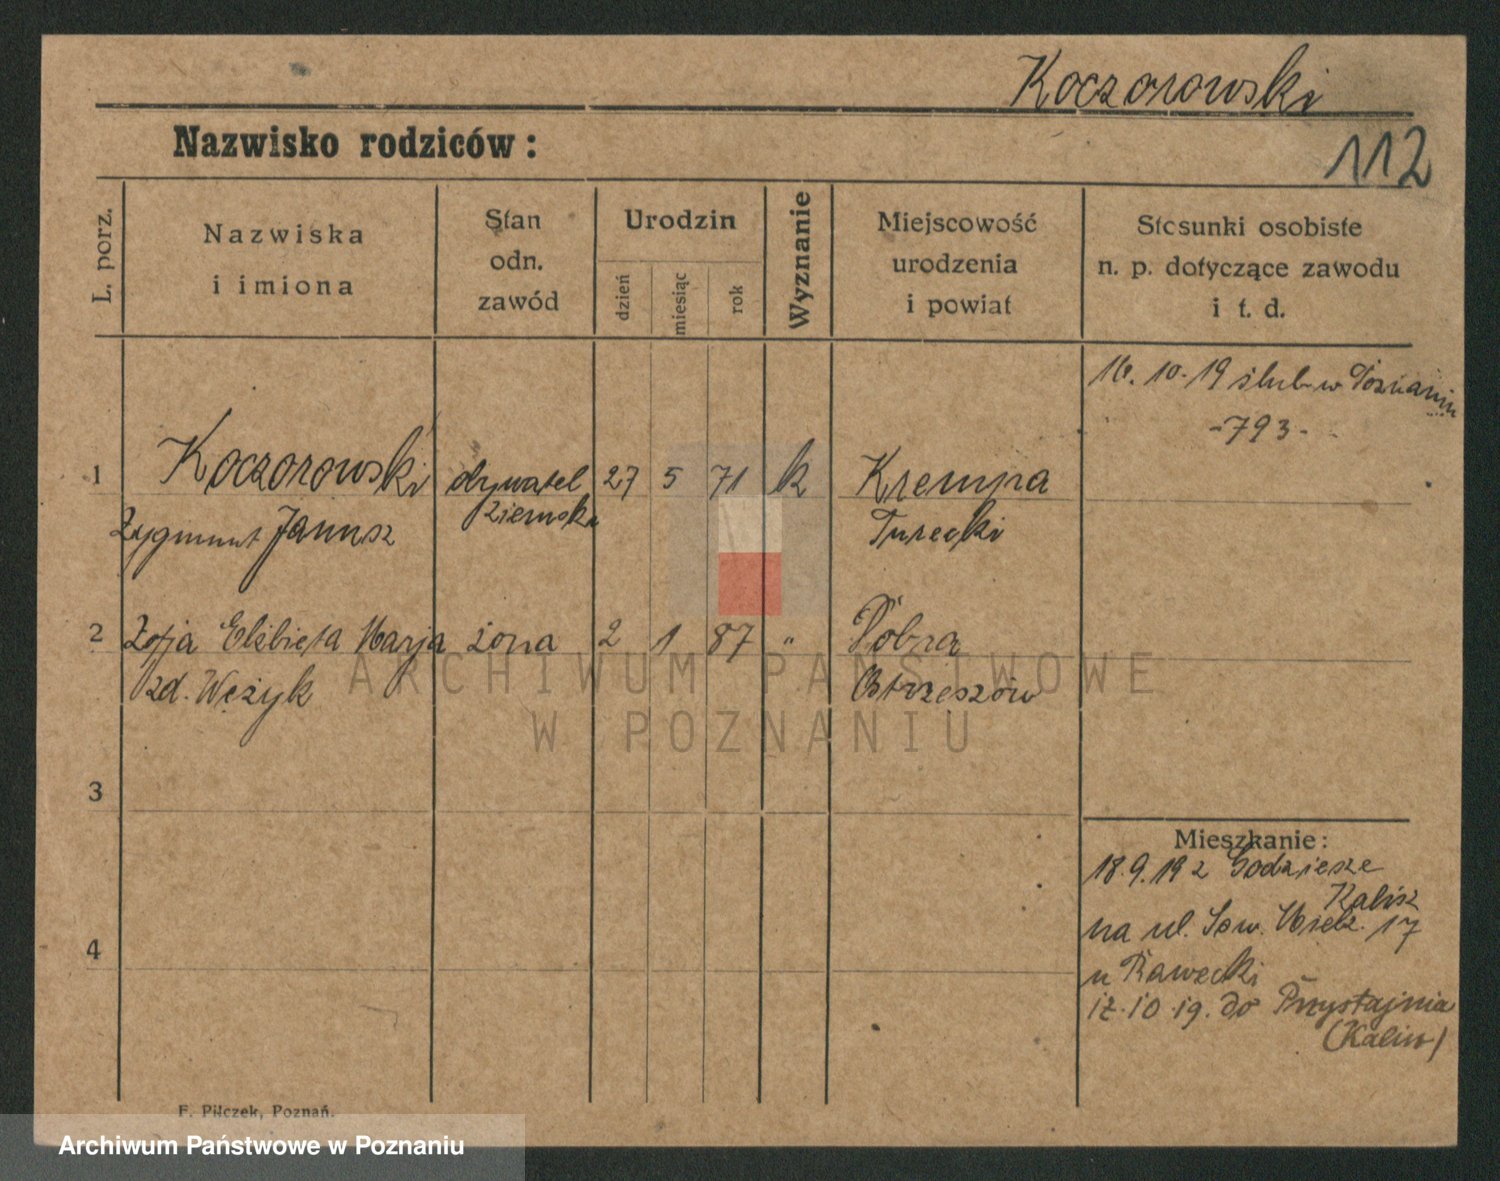 Koczorowski
112
Nazwisko rodziców :
L. porz.
Nazwiska
i imiona
Stan
odn.
zawód
Urodzin
dzień
miesiąc
rok
Wyznanie
Miejscowość
urodzenia
i powiat
Stosunki osobiste
n. p. dotyczące zawodu
i t. d.
16. 10. 19 ślub w Poznaniu
-793-
1 Koczorowski obywatel 27 5 71 k Krempa
Zygmunt Janusz ziemski Turecki
2 Zofja Elżbieta Marja żona 2 1 87 " Dobra
zd. Wężyk Ostrzeszów
3
4
Mieszkanie :
18.9.19 z Godziesze
Kalisz
na ul. Sew. Mielż. 17
u Rawecki
17.10.19. do Przystajnia
(Kalisz)
F. Pilczek, Poznań.
ARCHIWUM PAŃSTWOWE
W POZNANIU
Archiwum Państwowe w Poznaniu